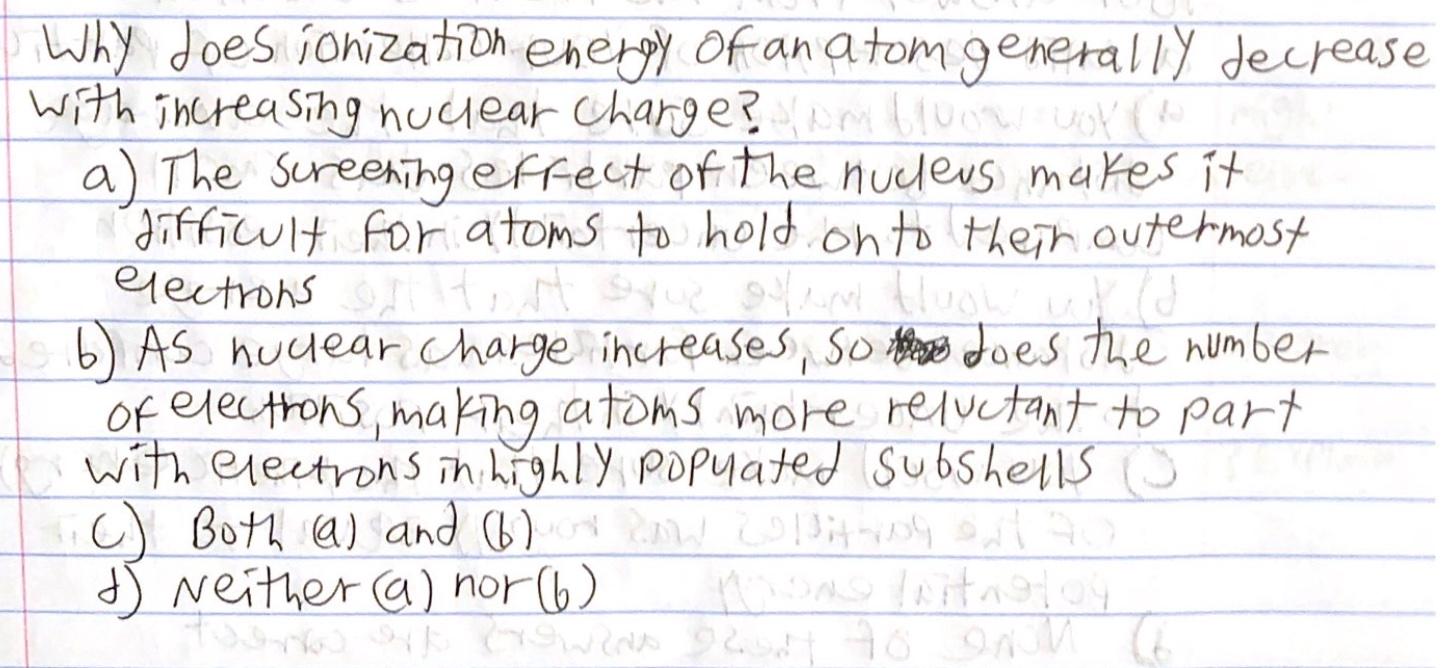 Why does ionization energy of an atom generally decrease
with increasing nuclear charge?
a) The screening effect of the nucleus makes it
difficult for atoms to hold onto their outermost
electrons
b) As nuclear charge increases, so does the number
of electrons, making atoms more reluctant to part
with electrons in highly populated subshells
c) Both (a) and (b)
d) Neither (a) nor (b)